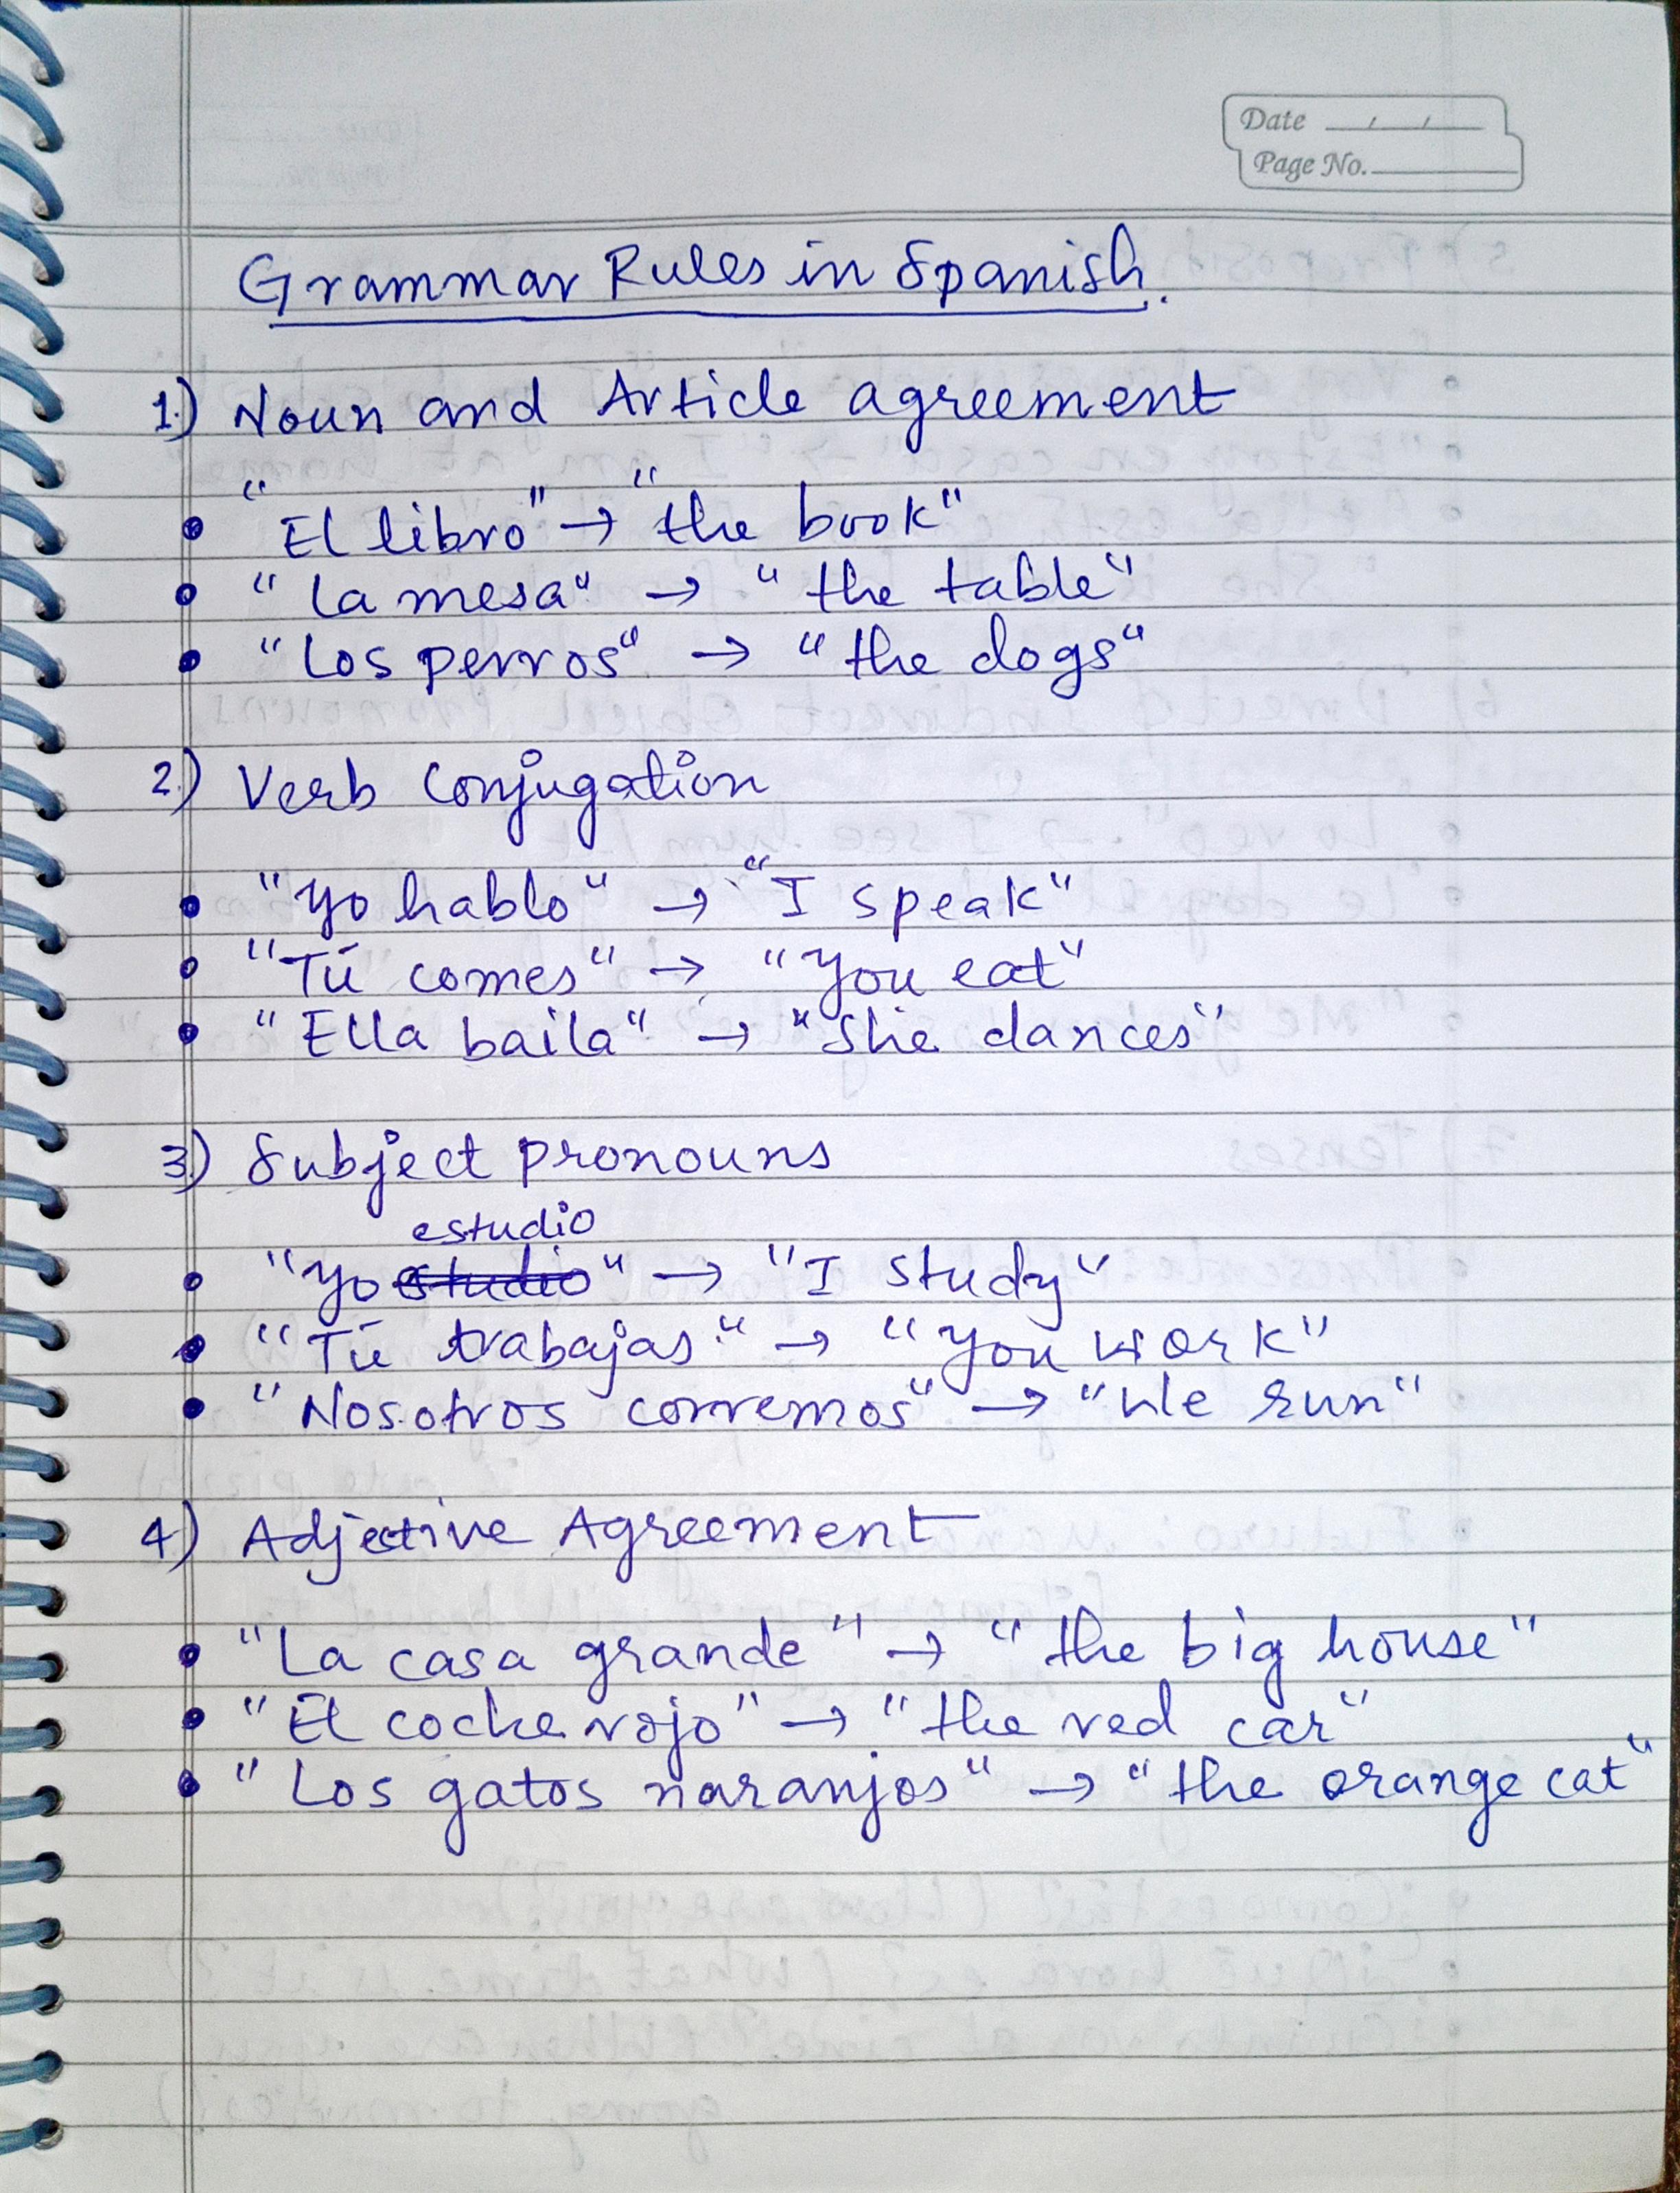 Date / /
Page No.
Grammar Rules in Spanish.
1.) Noun and Article agreement
• "El libro" → "the book"
• "La mesa" → "the table"
• "Los perros" → "the dogs"
2.) Verb Conjugation
• "Yo hablo" → "I speak"
• "Tú comes" → "You eat"
• "Ella baila" → "She dances"
3.) Subject pronouns
estudio
• "Yo studio" → "I study"
• "Tú trabajas" → "You work"
• "Nosotros corremos" → "We run"
4.) Adjective Agreement
• "La casa grande" → "the big house"
• "El coche rojo" → "the red car"
• "Los gatos naranjos" → "the orange cat"